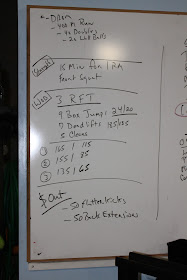 - DROM
- 400 M Run
- 40 Doubles
- 20 Wall Balls
Strength
15 Min for 1 RM
Front Squat
WOD
3 RFT
9 Box Jumps 24/20
7 Deadlifts 185/125
5 Cleans
1 165 / 115
2 155 / 85
3 135 / 65
$ Out
- 50 Flutter Kicks
- 50 Back Extensions